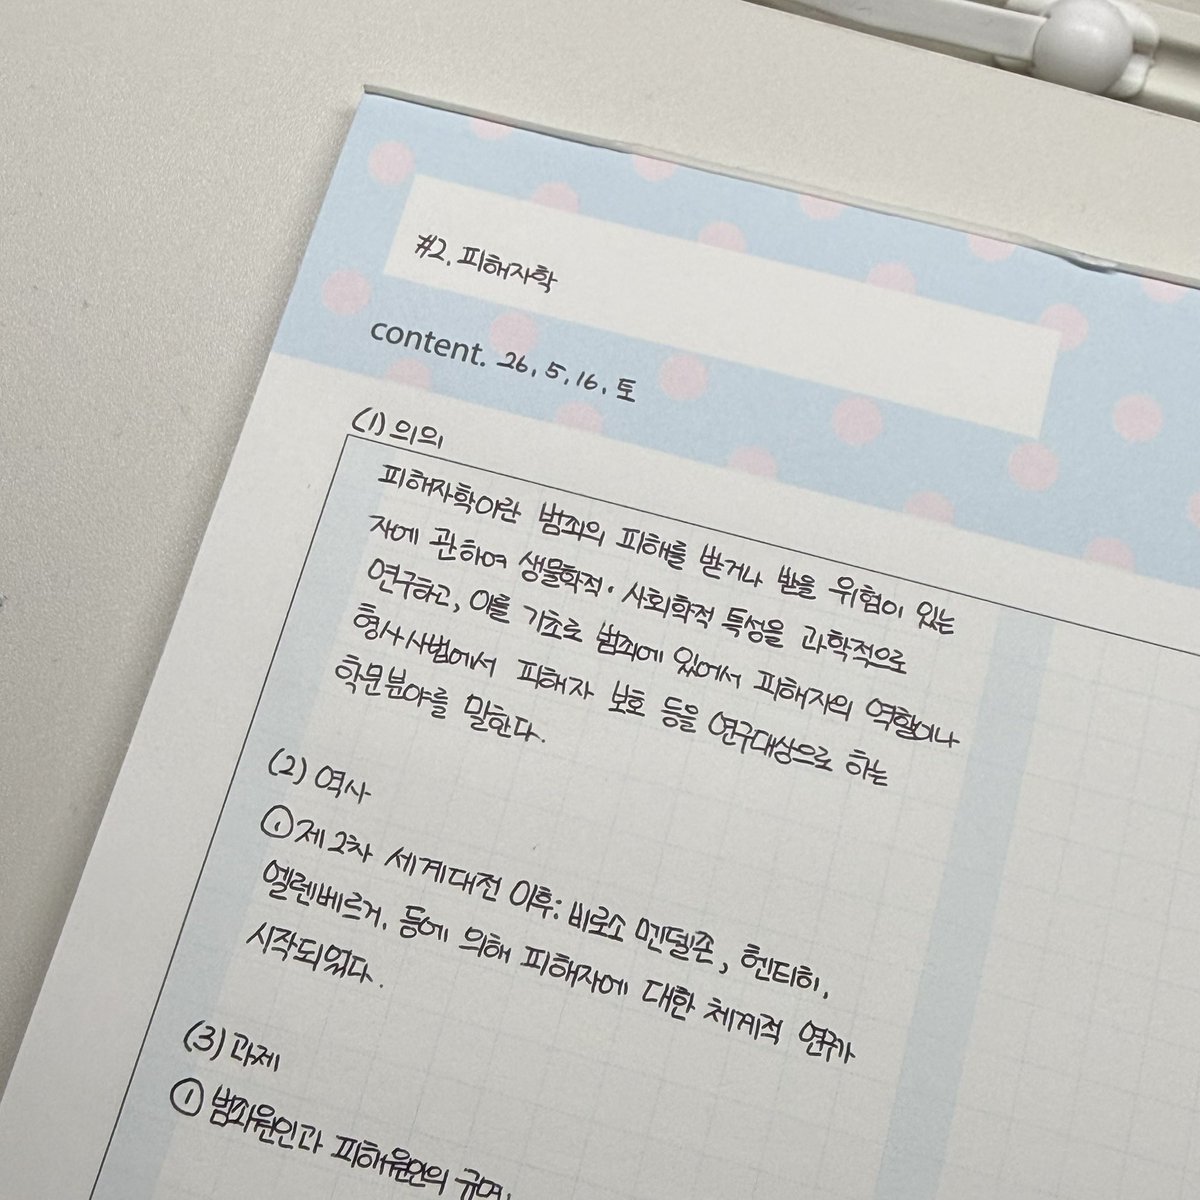 #2. 피해자학
content. 26. 5. 16. 토
(1) 의의
피해자학이란 범죄의 피해를 받거나 받을 위험이 있는
자에 관하여 생물학적·사회학적 특성을 과학적으로
연구하고, 이를 기초로 범죄에 있어서 피해자의 역할이나
형사사법에서 피해자 보호 등을 연구대상으로 하는
학문분야를 말한다.
(2) 역사
① 제2차 세계대전 이후: 비로소 멘델존, 헨티히,
엘렌베르거, 등에 의해 피해자에 대한 체계적 연구가
시작되었다.
(3) 과제
① 범죄원인과 피해원인의 규명,